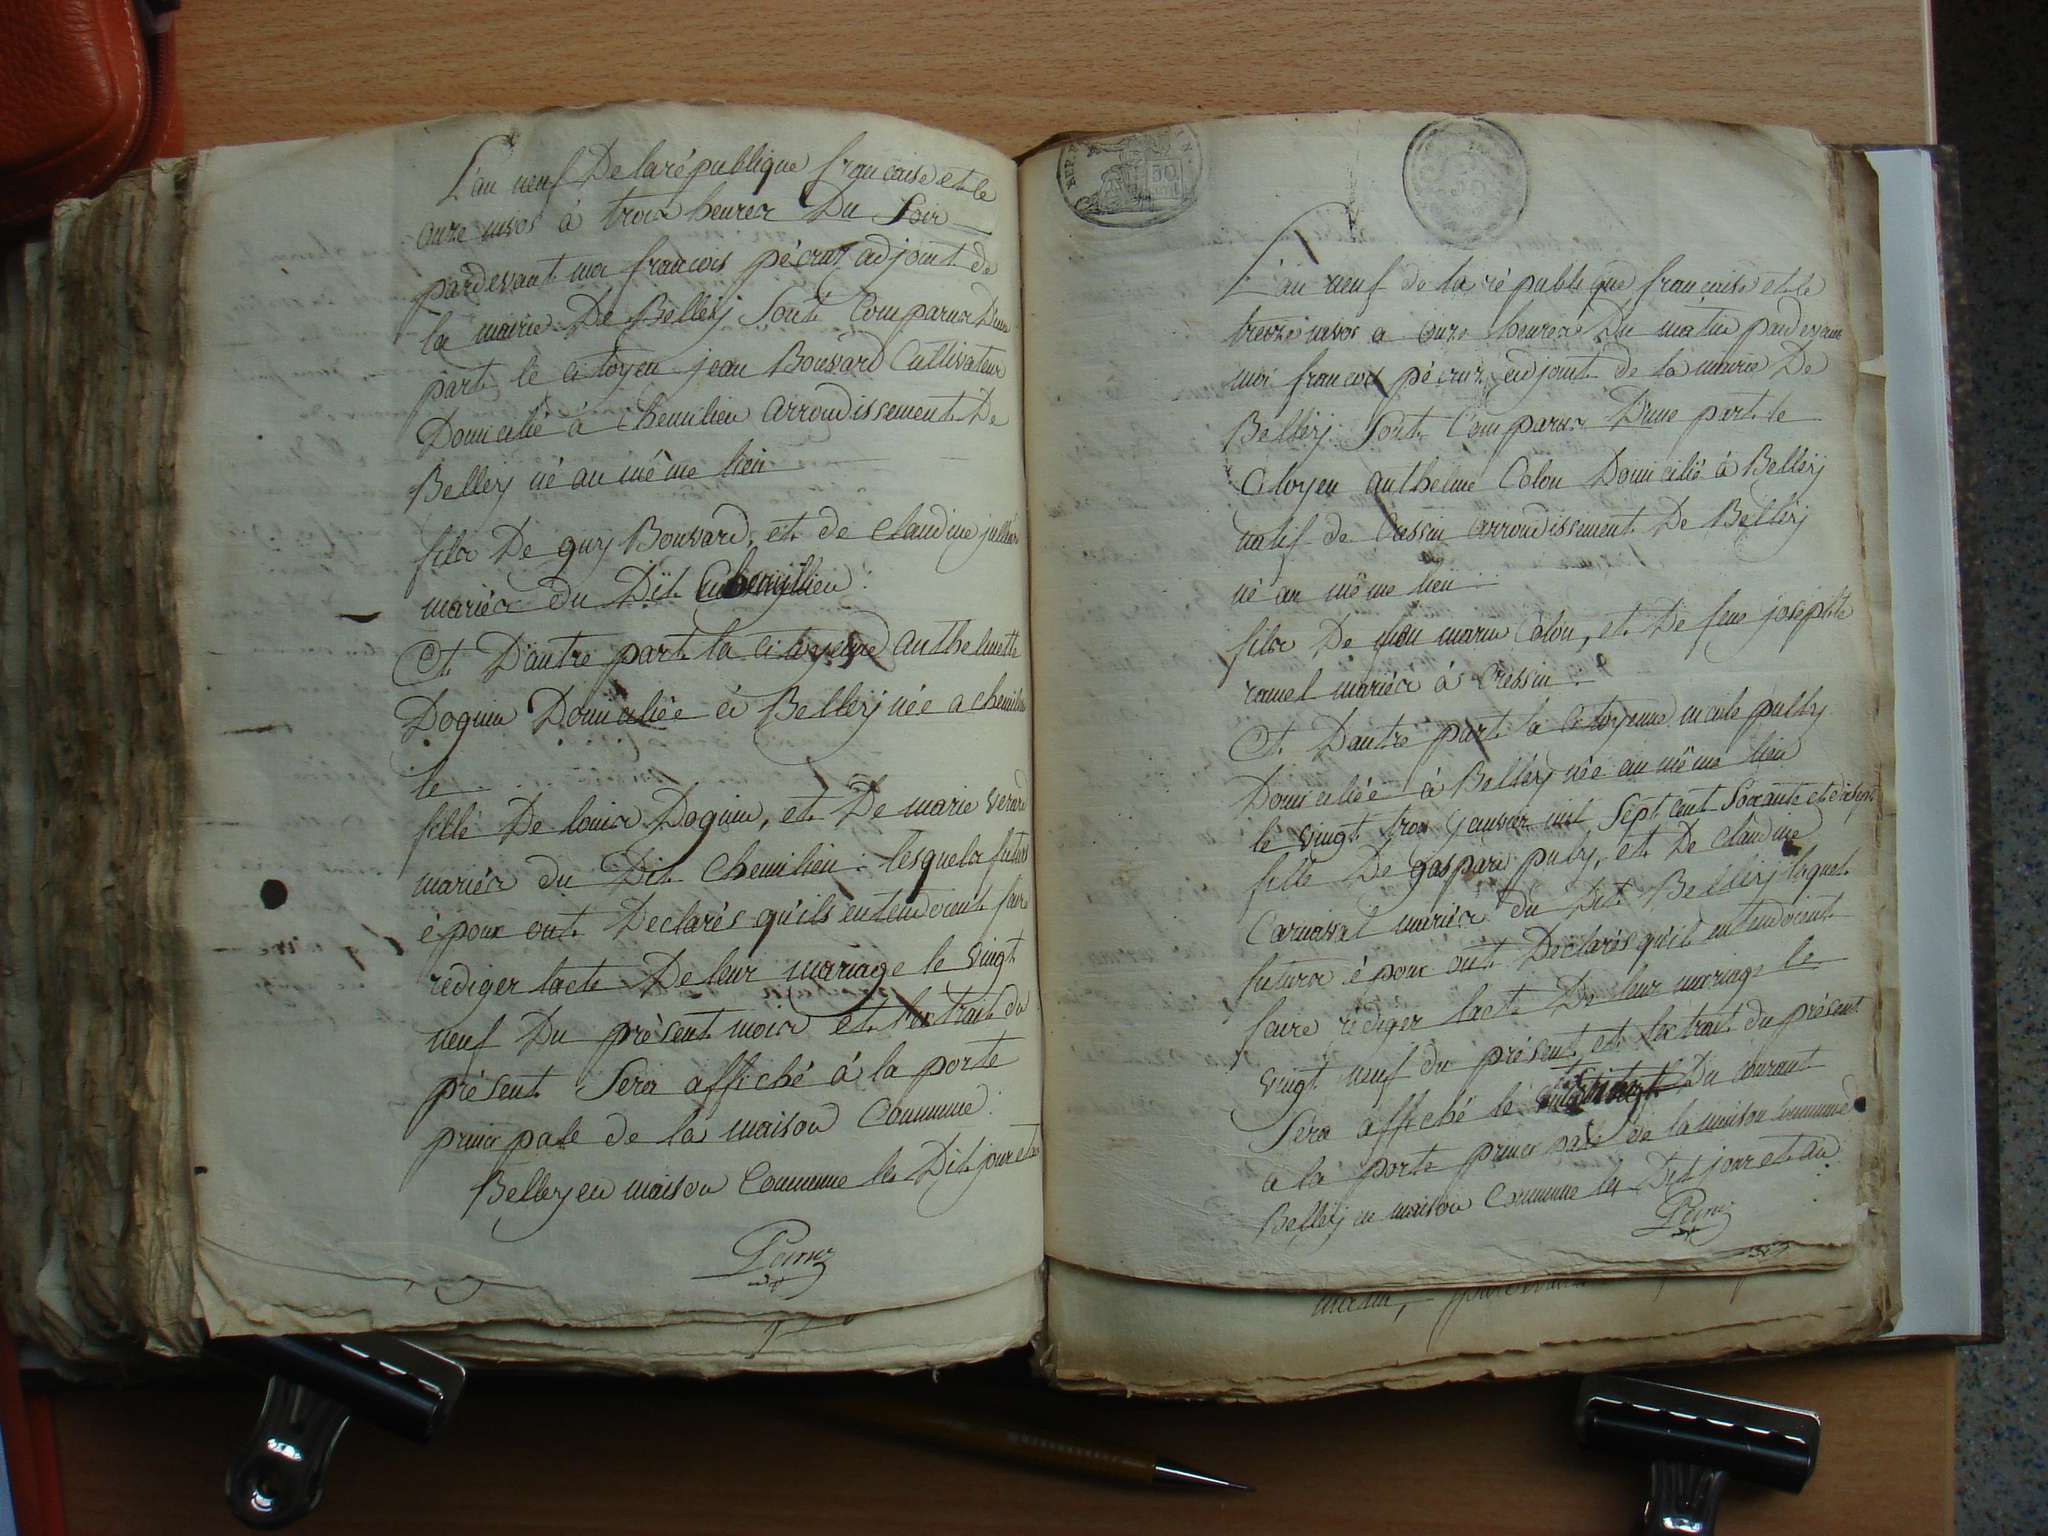 L'an neuf De la république française et le
onze nivos à trois heures Du Soir
pardevant moi françois pécruz adjoint de
la mairie De Belleÿ Sont Comparus D'une
part le citoyen jean Bouvard Cultivateur
Domicilié à chemilieu arrondissement De
Belleÿ né au même lieu
fils De guy Bouvard, et de claudine
mariés du Dit Chemillieu :
Et D'autre part la citoyenne anthelmette
Doguin Domiciliée à Belleÿ née a chemilieu
le
fille De louis Doguin, et De marie
mariés du Dit Chemilieu : lesquels futurs
époux ont Declarés qu'ils entendoient faire
rediger lacte De leur mariage le vingt
neuf Du présent mois et l'extrait du
présent Sera affiché à la porte
principale de la maison Commune
Belleÿ en maison Commune les Dit jour et an
Pécruz
REP. FRA.
50
L'an neuf de la république française et le
treize nivos a onze heures Du matin pardevant
moi françois pécruz adjoint de la mairie De
Belleÿ Sont Comparus D'une part le
Citoyen anthelme Colon Domicilié à Belleÿ
natif de Cressin arrondissement De Belleÿ
né au même lieu :
fils De marin Colon, et De feue josephte
ramel mariés à Cressin :
Et D'autre part la Citoyenne pully
Domiciliée à Belleÿ née au même lieu
le vingt trois janvier mil Sept cent Soixante et dix sept
fille De gaspard pully, et De claudine
Carnaval mariés du Dit Belleÿ lesquels
futurs époux ont Declarés qu'ils entendoient
faire rédiger lacte De leur mariage le
vingt neuf du présent, et lextrait du présent
Sera affiché le Du courant
a la porte principale de la maison commune
Belleÿ en maison Commune les Dit jour et an
Pécruz